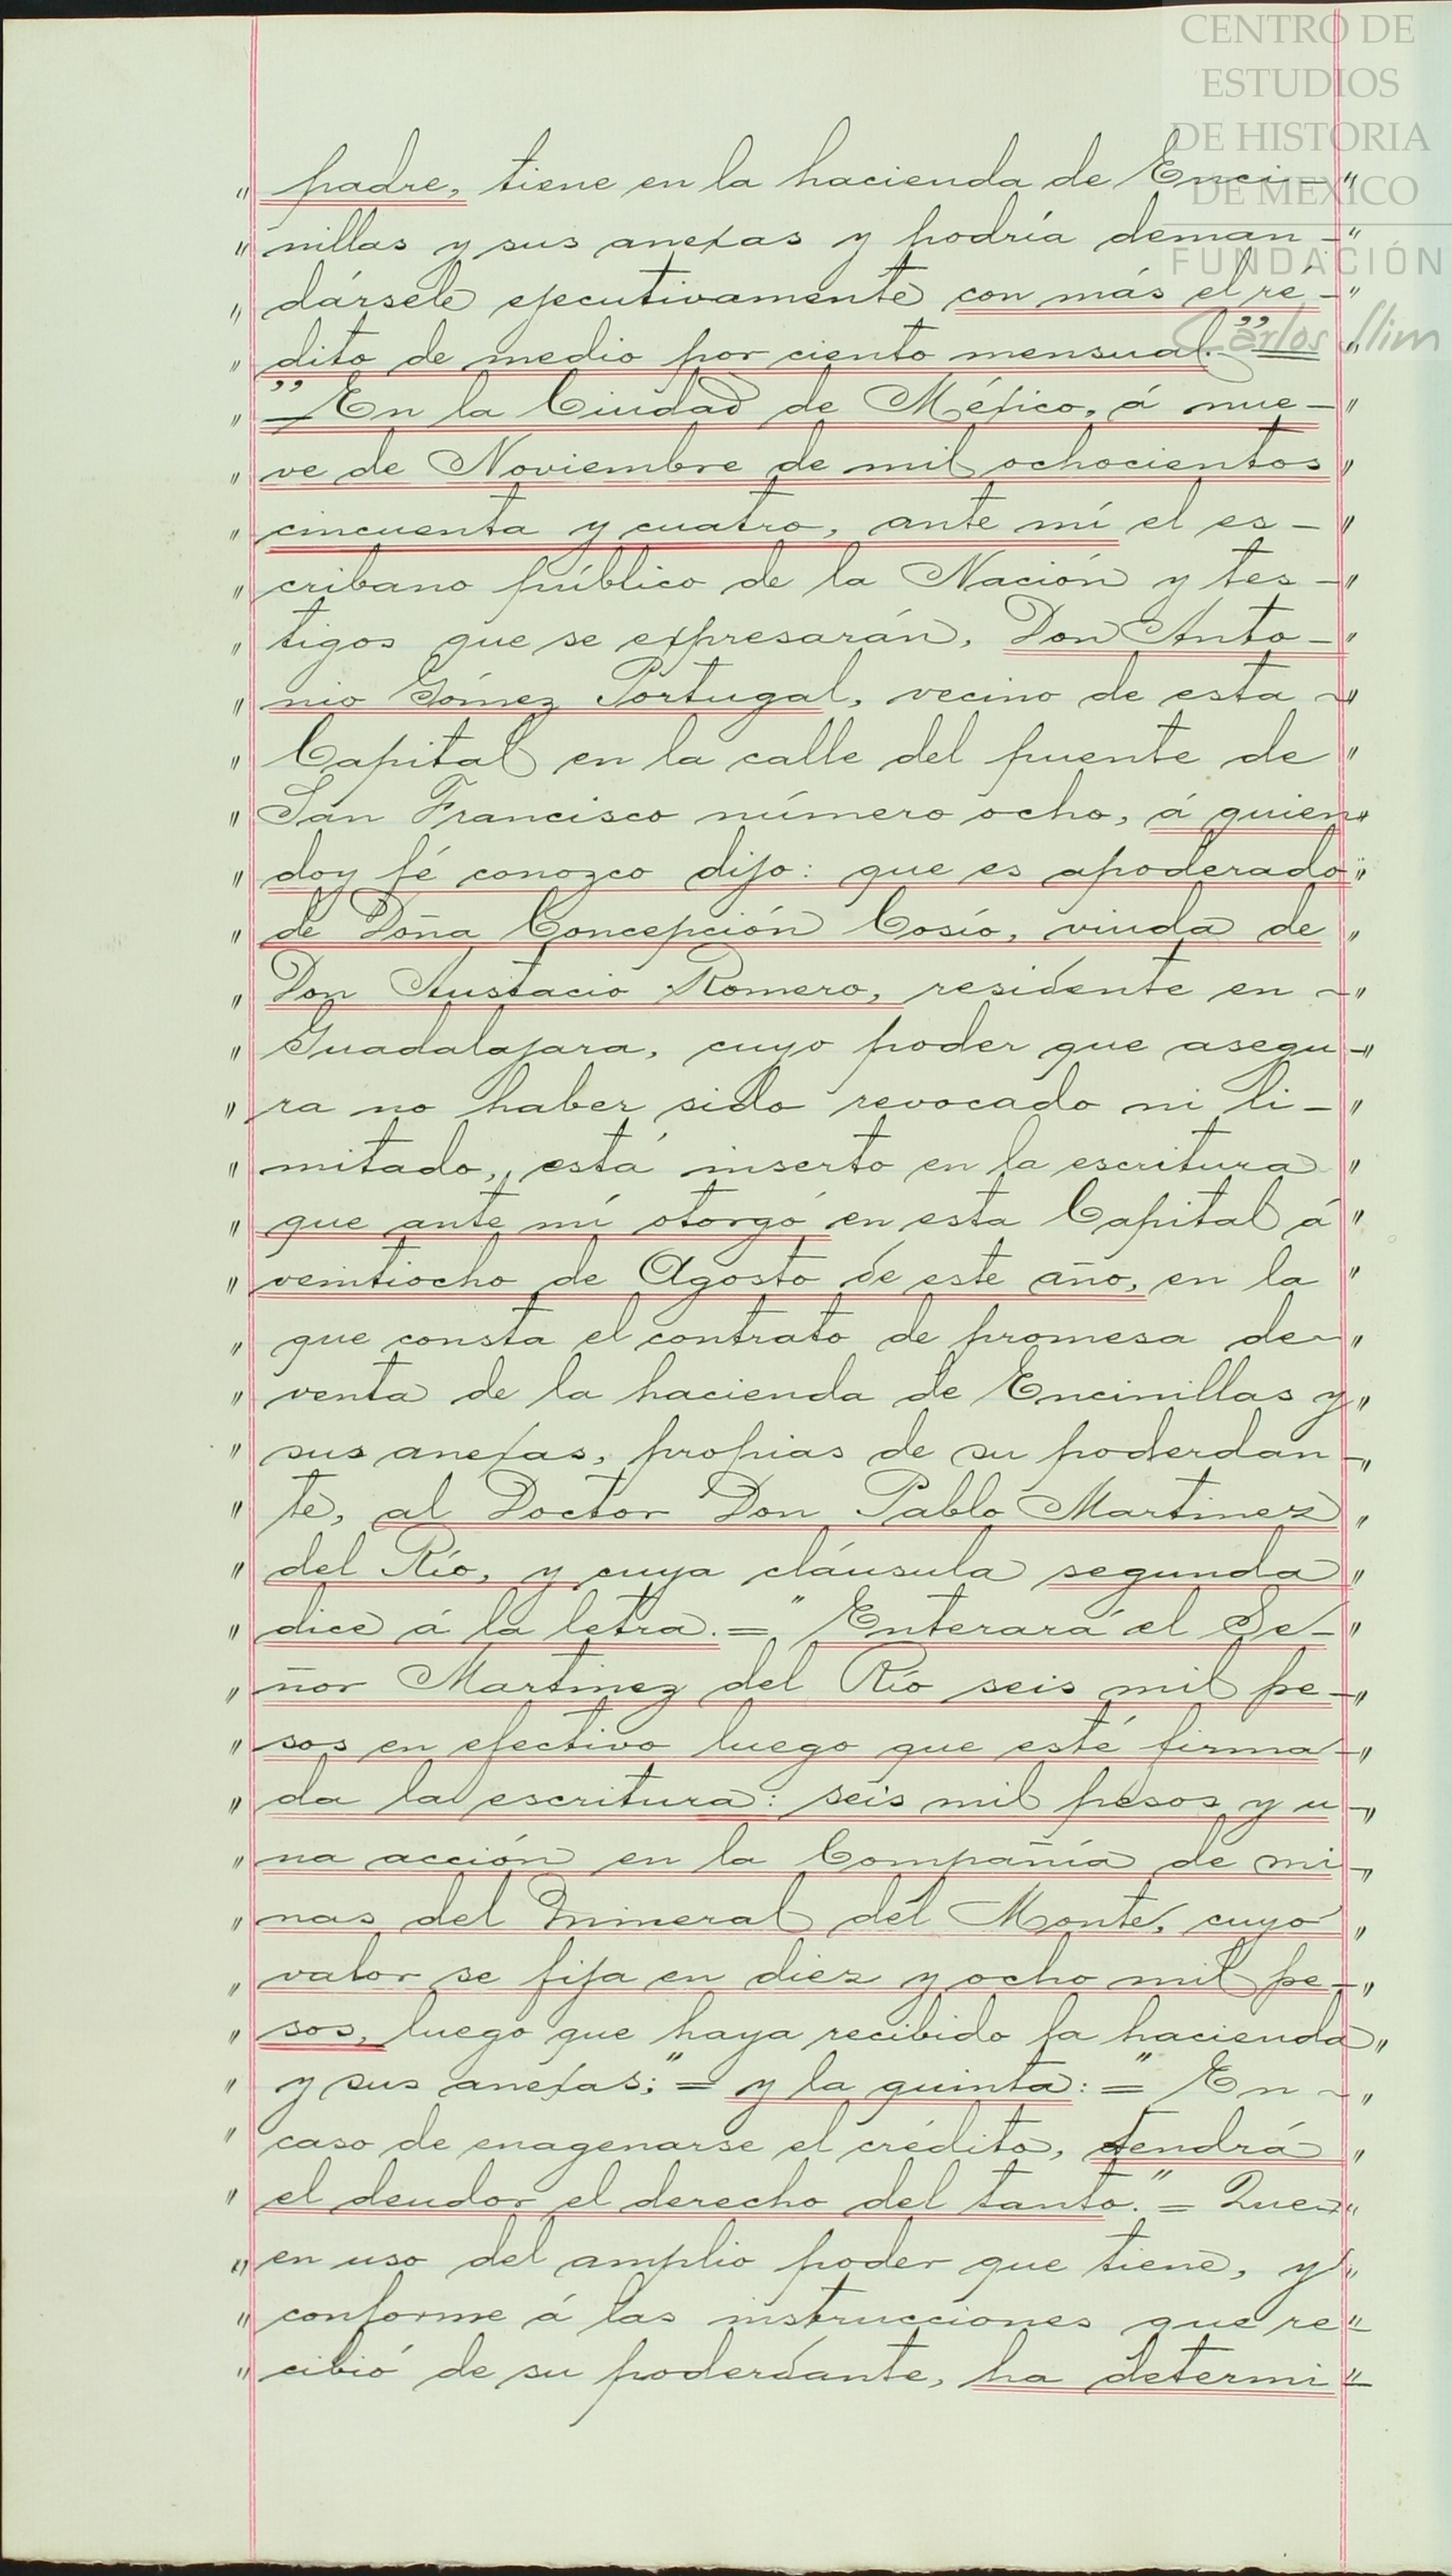 CENTRO DE
ESTUDIOS
DE HISTORIA
DE MEXICO
FUNDACIÓN
Carlos Slim
" padre, tiene en la hacienda de Enci-"
" nillas y sus anexas y podría deman-"
" dársele ejecutivamente con más el ré-"
" dito de medio por ciento mensual." = "
" "_ En la Ciudad de México, á nue-"
" ve de Noviembre de mil ochocientos "
" cincuenta y cuatro, ante mí el es-"
" cribano público de la Nación y tes-"
" tigos que se expresarán, Don Anto-"
" nio Gómez Portugal, vecino de esta ~"
" Capital en la calle del puente de "
" San Francisco número ocho, á quien"
" doy fé conozco dijo: que es apoderado"
" de Doña Concepción Cosío, viuda de "
" Don Austacio Romero, residente en ~"
" Guadalajara, cuyo poder que asegu-"
" ra no haber sido revocado ni li-"
" mitado, está inserto en la escritura "
" que ante mí otorgó en esta Capital á "
" veintiocho de Agosto de este año, en la "
" que consta el contrato de promesa de "
" venta de la hacienda de Encinillas y "
" sus anexas, propias de su poderdan-"
" te, al Doctor Don Pablo Martinez "
" del Río, y cuya cláusula segunda "
" dice á la letra. = " Enterará el Se-"
" ñor Martinez del Río seis mil pe-"
" sos en efectivo luego que esté firma-"
" da la escritura: seis mil pesos y u-"
" na acción en la Compañía de mi-"
" nas del Mineral del Monte, cuyo "
" valor se fija en diez y ocho mil pe-"
" sos, luego que haya recibido la hacienda "
" y sus anexas;" = y la quinta: = " En ~"
" caso de enagenarse el crédito, tendrá "
" el deudor el derecho del tanto." = Que "
" en uso del amplio poder que tiene, y "
" conforme á las instrucciones que re-"
" cibió de su poderdante, ha determi-"